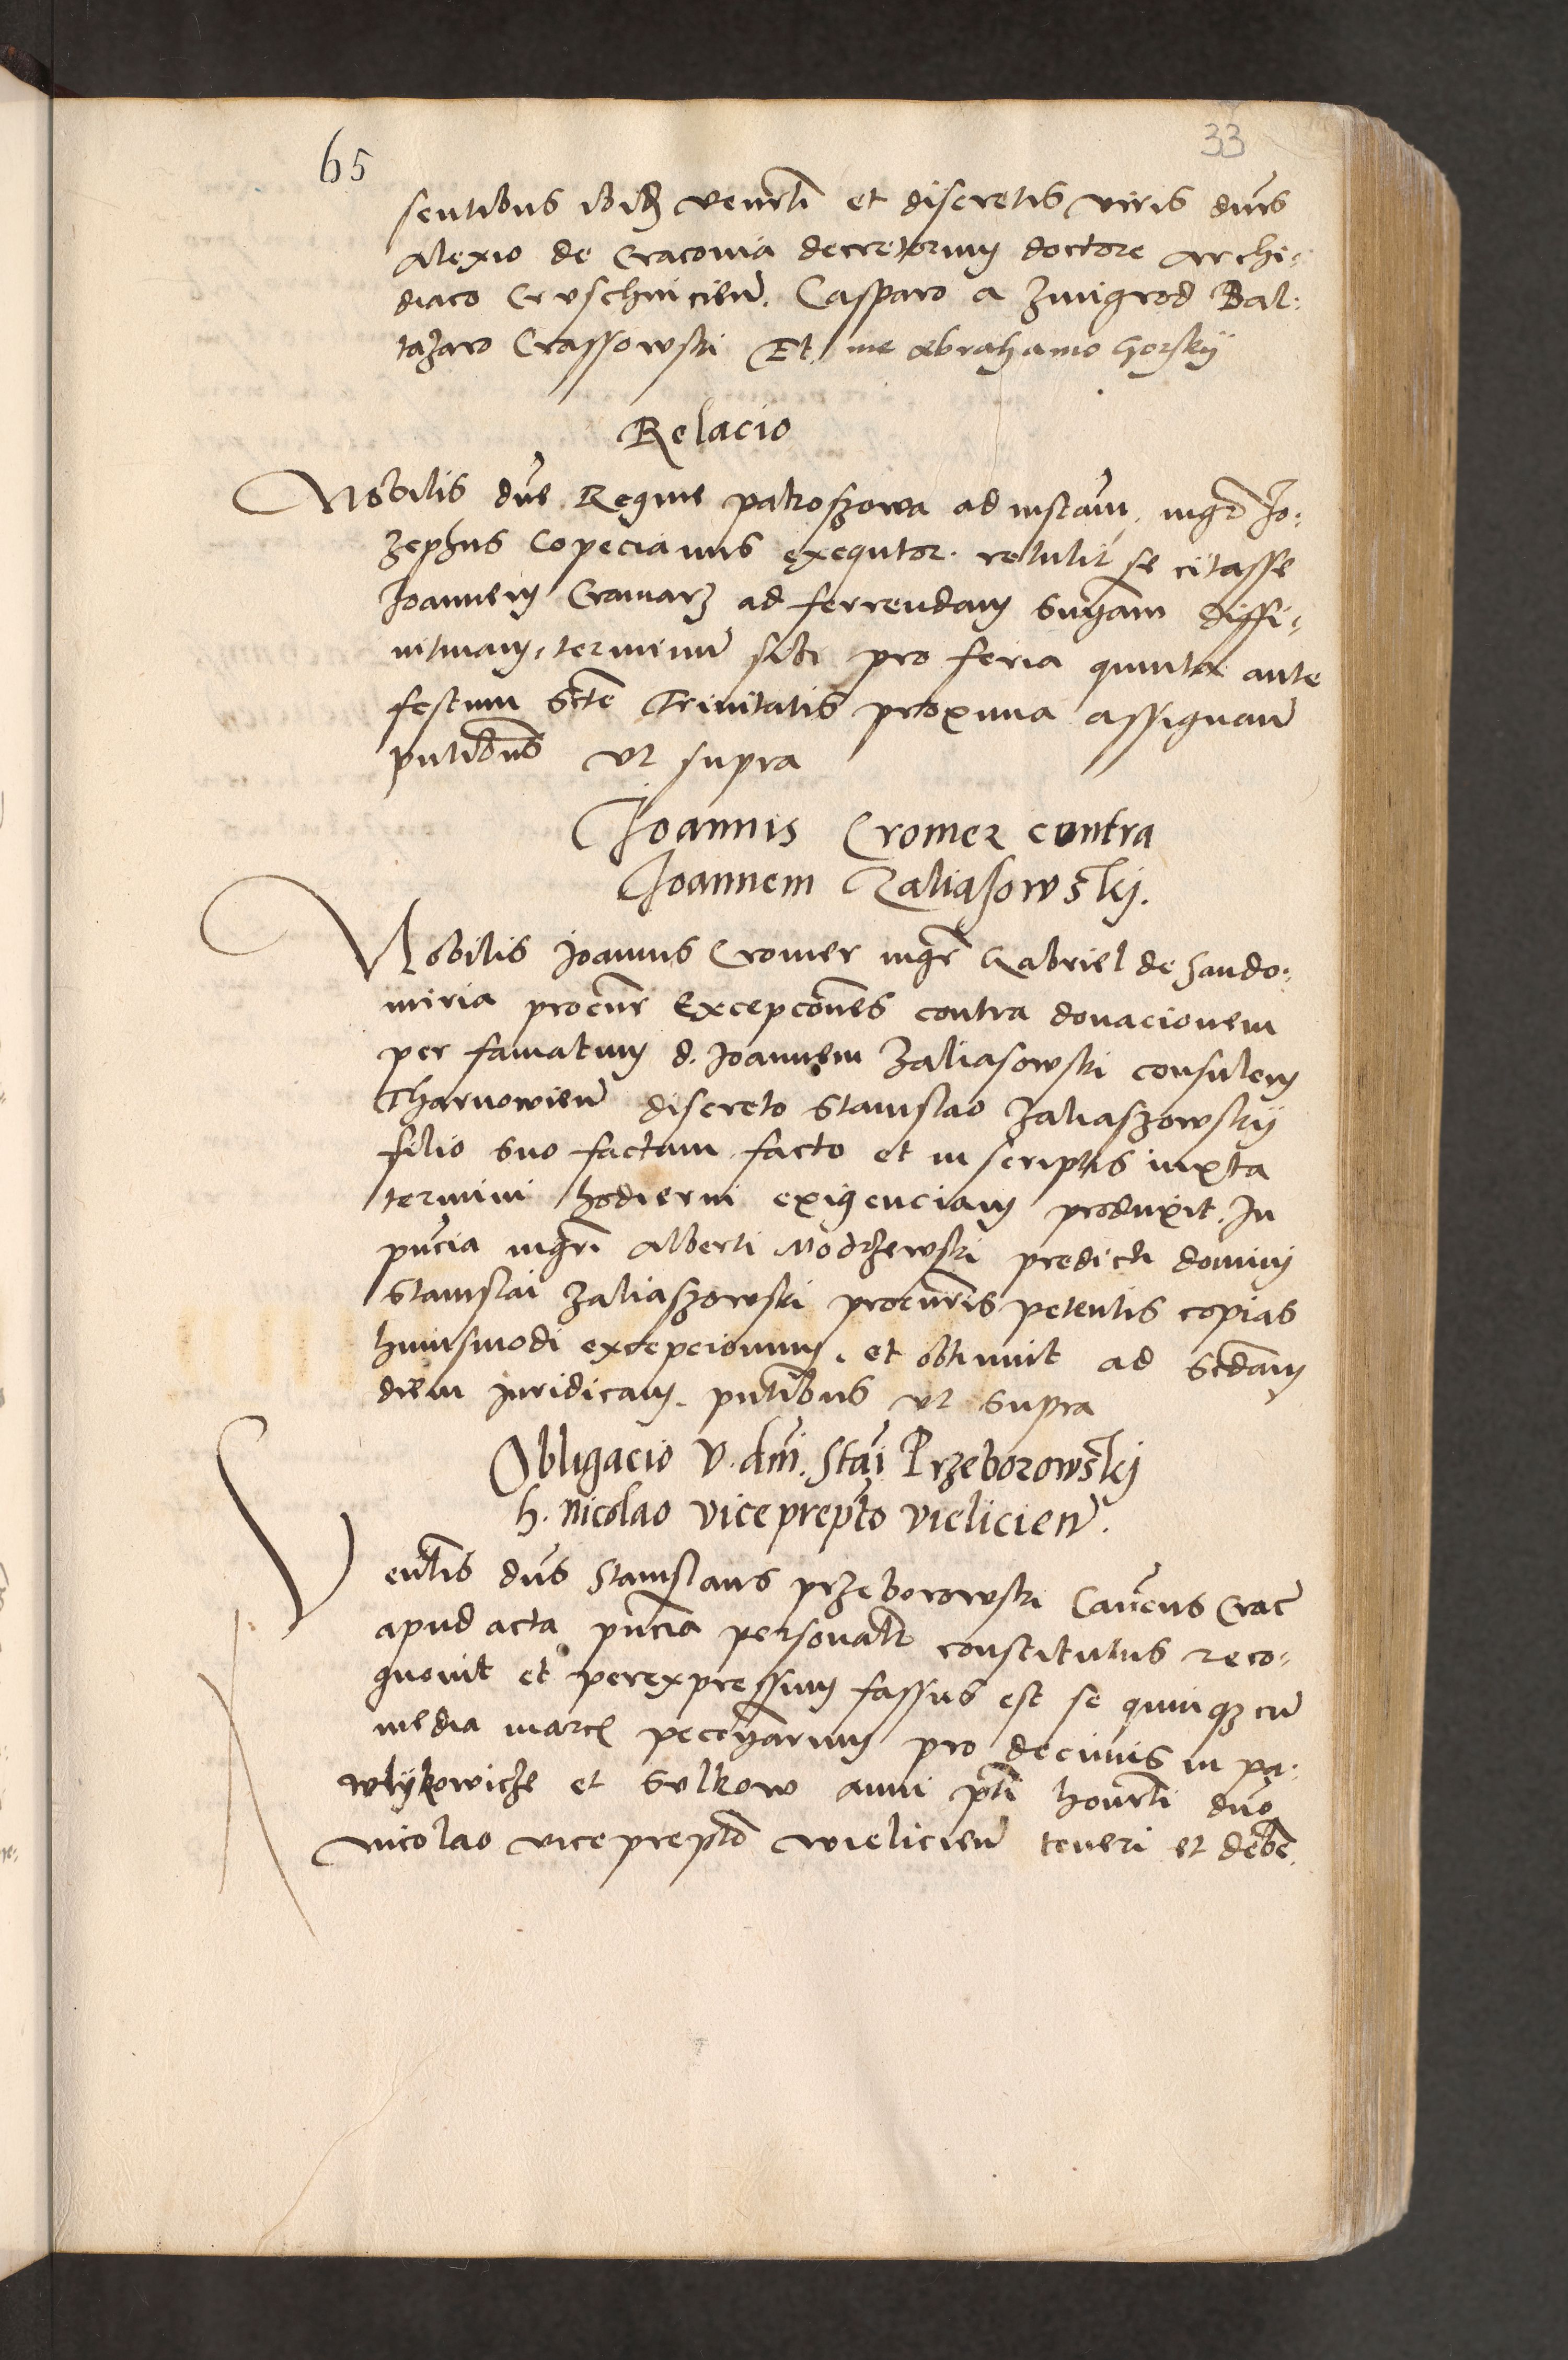 65
33
sentibus ibidẽ venerli et discretis viris dnis
Alexio de Cracovia decretorum doctore Archi-
diaco Cruschvicien̄. Casparo a Zmigrod Bal-
tazaro Crassowski Et me Abrahamo Gorskÿ
Relacio
Nobilis dn̄e Regine patkoszowa ad instan̄. mgr Jo-
zephus Copecianus exequtor. retulit se citasse
Joannem Cramarz ad ferrendam sn̄iam diffi-
nitivam, terminū sibi pro feria quinta ante
festum Scte Trinitatis proxima assignan̄
pn̄tibus ut supra
Joannis Cromer contra
Joannem Zaliasowskj.
Nobilis Joannis Cromer mgr̄ Gabriel de Sando-
miria procur Excepcōnes contra donacionem
per famatum d. Joannem Zaliasowski consulem
Tharnowien̄ discreto Stanislao Zaliaszowskÿ
filio suo factam facto et in scriptis iuxta
termini hodierni exigenciam produxit. In
pn̄cia mgr̄i Alberti Modrzewski predicti domini
Stanislai Zaliaszowski procurīs petentis copias
huiusmodi excepcionum. et obtinuit ad scdam
diem Juridicam. pn̄tibus ut supra
Obligacio V. dni. Stai Przeborowskj
h. Nicolao viceprepto vielicien̄.
Venlis dn̄s Stanislaus przeborowski Can̄cus Crac̄
apud acta pn̄cia personalr constitutus reco-
gnovit et perexpressum fassus est se quinqz cū
media marcs peccuniarum pro decimis in pa-
wlÿkowicze et Sulkow anni pn̄ti honorli dn̄o
Nicolao viceprepto wielicien̄ teneri et debē.